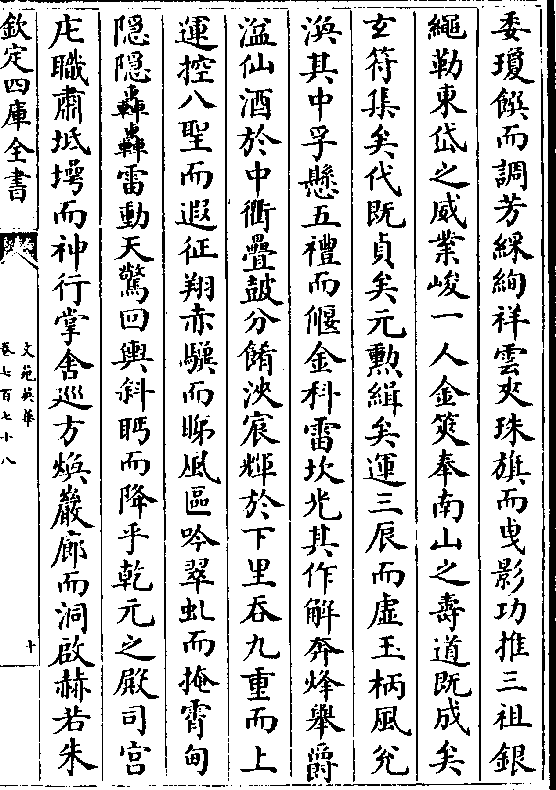 委瓊饌而調芳綵絢祥雲夾珠旗而曳影功推三祖銀
繩勒東岱之威業峻一人金筴奉南山之壽道既成矣
玄符集矣代既貞矣元勲緝矣運三辰而虚玉柄風兊
渙其中孚懸五禮而偃金科雷坎光其作解奔烽舉爵
溢仙酒於中衢疊鼓分餚泱宸輝於下里吞九重而上
運控八聖而遐征翔赤驥而睇風區吟翠虬而掩霄甸
隠隠轟轟雷動天驚回輿斜眄而降乎乾元之殿司宫
庀職肅坻堮而神行掌舍巡方煥巖廊而洞啟赫若朱
欽定四庫全書
文苑英華
卷七百七十八
十